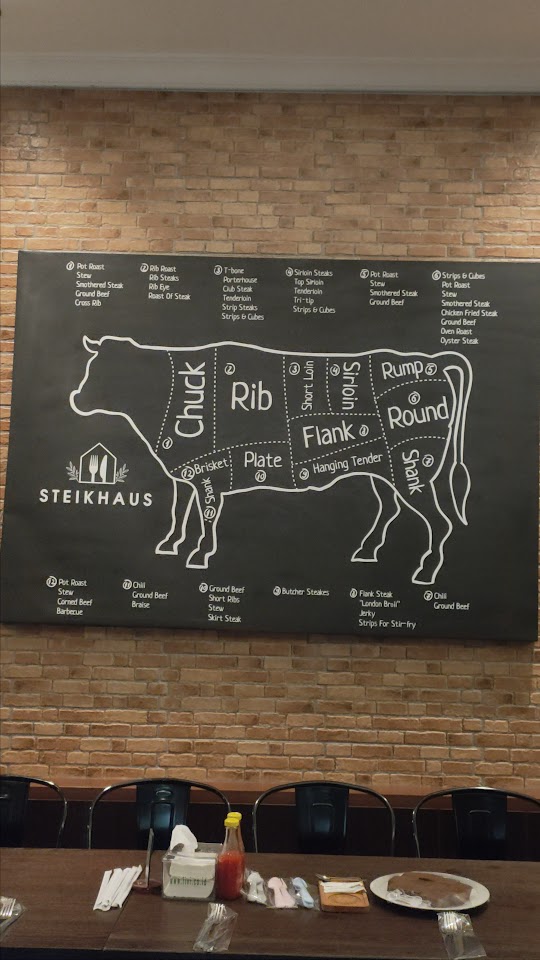 ① Pot Roast
Stew
Smothered Steak
Ground Beef
Cross Rib
② Rib Roast
Rib Steaks
Rib Eye
Roast Of Steak
③ T-bone
Porterhouse
Club Steak
Tenderloin
Strip Steaks
Strips & Cubes
④ Sirloin Steaks
Top Sirloin
Tenderloin
Tri-tip
Strips & Cubes
⑤ Pot Roast
Stew
Smothered Steak
Ground Beef
⑥ Strips & Cubes
Pot Roast
Stew
Smothered Steak
Chicken Fried Steak
Ground Beef
Oven Roast
Oyster Steak
Chuck ①
② Rib
③ Short Loin
④ Sirloin
Rump ⑤
⑥ Round
Flank ⑧
Shank ⑦
⑨ Hanging Tender
Plate ⑩
⑫ Brisket
Shank ⑪
STEIKHAUS
⑫ Pot Roast
Stew
Corned Beef
Barbecue
⑪ Chili
Ground Beef
Braise
⑩ Ground Beef
Short Ribs
Stew
Skirt Steak
⑨ Butcher Steakes
⑧ Flank Steak
"London Broil"
Jerky
Strips For Stir-fry
⑦ Chili
Ground Beef